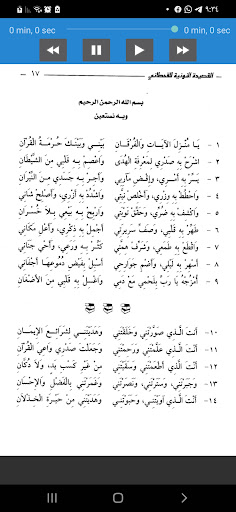 ٩:٣٤
0 min, 0 sec
0 min, 0 sec
القصيدة النونية للقحطاني ١٧
بسم الله الرحمن الرحيم
وبه نستعين
١ - يَا مُنْزِلَ الآيَاتِ وَالفُرْقَانِ بَيْنِي وَبَيْنَكَ حُرْمَةُ القُرْآنِ
٢ - اشْرَحْ بِهِ صَدْرِي لِمَعْرِفَةِ الهُدَى وَاعْصِمْ بِهِ قَلْبِي مِنَ الشَّيْطَانِ
٣ - يَسِّرْ بِهِ أَمْرِي، وَاقْضِ مَآرِبِي وَأَجِرْ بِهِ جَسَدِي مِنَ النِّيرَانِ
٤ - وَاحْطُطْ بِهِ وِزْرِي، وَأَخْلِصْ نِيَّتِي وَاشْدُدْ بِهِ أَزْرِي، وَأَصْلِحْ شَانِي
٥ - وَاكْشِفْ بِهِ ضُرِّي، وَحَقِّقْ تَوْبَتِي وَارْبِحْ بِهِ بَيْعِي بِلَا خُسْرَانِ
٦ - طَهِّرْ بِهِ قَلْبِي، وَصَفِّ سَرِيرَتِي أَجْمِلْ بِهِ ذِكْرِي، وَأَعْلِ مَكَانِي
٧ - وَاقْطَعْ بِهِ طَمَعِي، وَشَرِّفْ هِمَّتِي كَثِّرْ بِهِ وَرَعِي، وَأَحْيِ جَنَانِي
٨ - أَسْهِرْ بِهِ لَيْلِي، وَأَظْمِ جَوَارِحِي أَسْبِلْ بِفَيْضِ دُمُوعِهَا أَجْفَانِي
٩ - امْزُجْهُ يَا رَبِّ بِلَحْمِي مَعْ دَمِي وَاغْسِلْ بِهِ قَلْبِي مِنَ الأَضْغَانِ
١٠ - أَنْتَ الَّذِي صَوَّرْتَنِي وَخَلَقْتَنِي وَهَدَيْتَنِي لِشَرَائِعِ الإِيمَانِ
١١ - أَنْتَ الَّذِي عَلَّمْتَنِي وَرَحِمْتَنِي وَجَعَلْتَ صَدْرِي وَاعِيَ القُرْآنِ
١٢ - أَنْتَ الَّذِي أَطْعَمْتَنِي وَسَقَيْتَنِي مِنْ غَيْرِ كَسْبِ يَدٍ، وَلَا دُكَّانِ
١٣ - وَجَبَرْتَنِي، وَسَتَرْتَنِي، وَنَصَرْتَنِي وَغَمَرْتَنِي بِالفَضْلِ وَالإِحْسَانِ
١٤ - أَنْتَ الَّذِي آوَيْتَنِي، وَحَبَوْتَنِي وَهَدَيْتَنِي مِنْ حَيْرَةِ الخِذْلَانِ